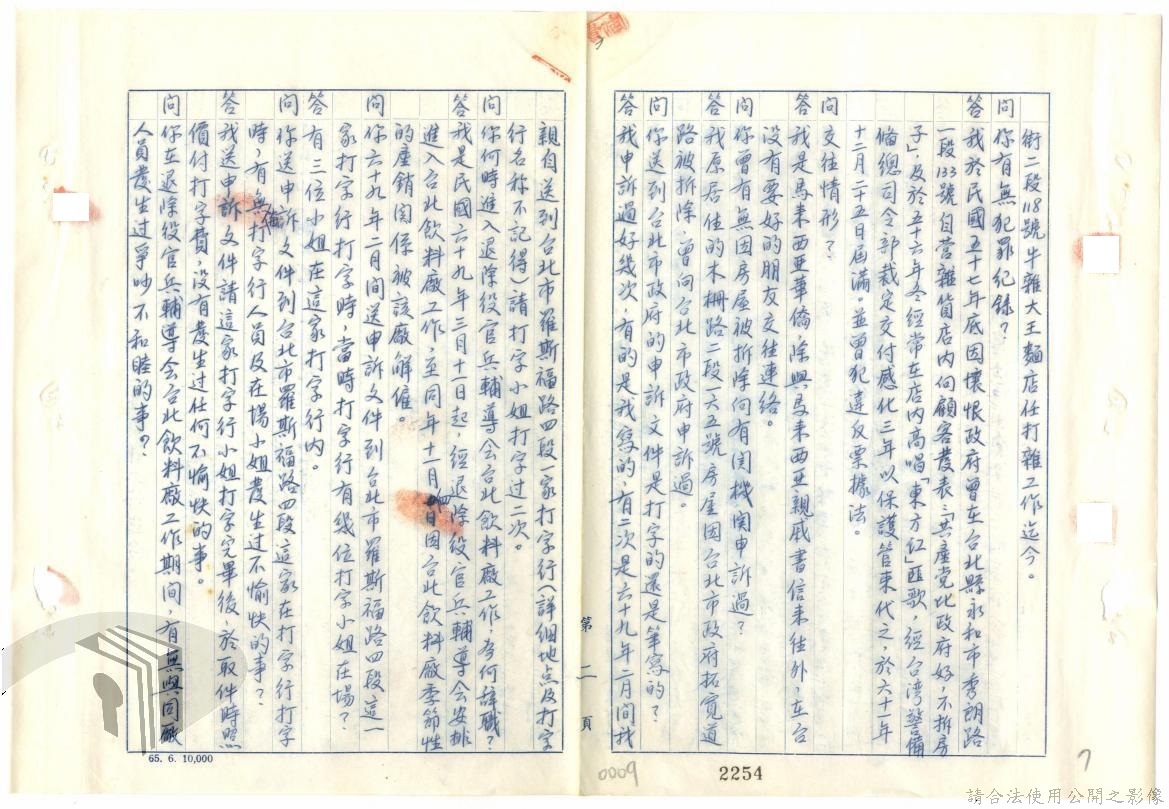 街二段118號牛雜大王麵店任打雜工作迄今。
問你有無犯罪紀錄？
答我於民國五十七年底因懷恨政府曾在台北縣永和市秀朗路
一段133號自营雜貨店內向顧客發表：「共產党比政府好，不拆房
子」，及於五十六年冬經常在店內高唱「東方红」匪歌，經台湾警備
總司令部裁定交付感化三年以保護管束代之，於六十一年
十二月二十五日屆滿。並曾犯違反票據法。
問交往情形？
答我是馬来西亚華僑，除與馬来西亚親戚書信来往外，在台
没有要好的朋友交往連络。
問你曾有無因房屋被拆除向有関機関申訴過？
答我原居住的木栅路二段一六五號房屋因台北市政府拓寬道
路被拆除，曾向台北市政府申訴過。
問你送到台北市政府的申訴文件是打字的還是筆寫的？
答我申訴過好幾次，有的是我寫的，有二次是六十九年二月間我
第二頁
親自送到台北市羅斯福路四段一家打字行（詳細地点及打字
行名称不記得）請打字小姐打字过二次。
問你何時進入退除役官兵輔導会台北飲料廠工作，为何辞職？
答我是民國六十九年三月十一日起，經退除役官兵輔導会安排
進入台北飲料廠工作，至同年十一月 日因台北飲料廠季節性
的產銷関係被該廠解僱。
問你六十九年二月間送申訴文件到台北市羅斯福路四段這一
家打字行打字時，當時打字行有幾位打字小姐在場？
答有三位小姐在這家打字行內。
問你送申訴文件到台北市羅斯福路四段這家在打字行打字
時，有無 打字行人員及在場小姐發生过不愉快的事？
答我送申訴文件請這家打字行小姐打字完畢後，於取件時照
價付打字費，没有發生过任何不愉快的事。
問你在退除役官兵輔導会台北飲料廠工作期間，有無與同廠
人員發生过爭吵不和睦的事？
65. 6. 10,000
0009
2254
7
請合法使用公開之影像